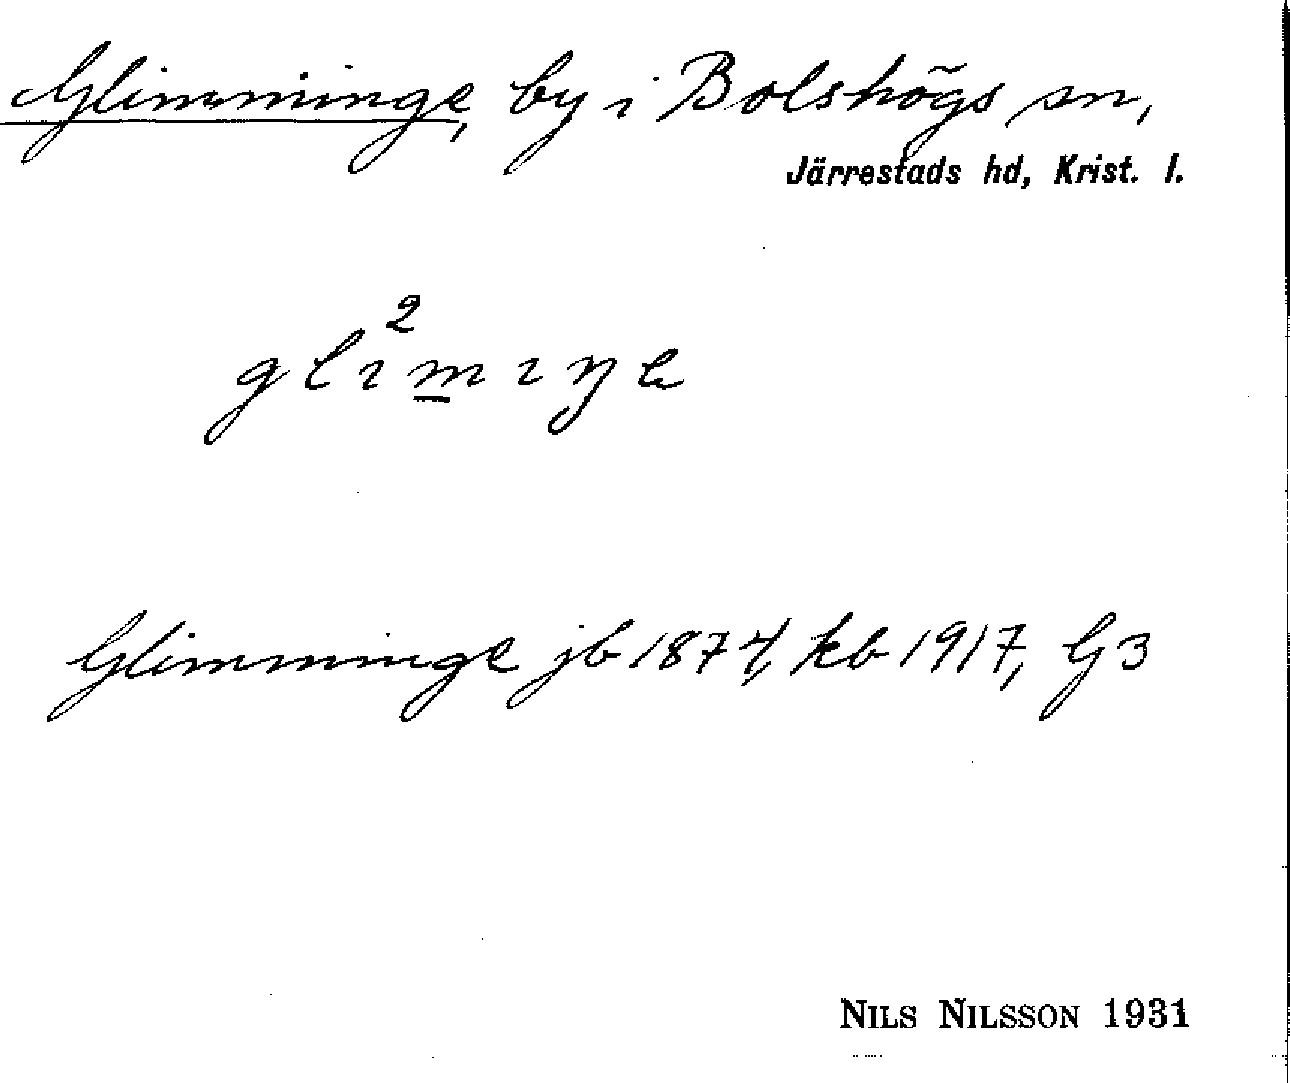 Glimminge, by i Bolshögs sn,
Järrestads hd, Krist. l.
glı²m̲ıŋe
Glimminge jb 1874, kb 1917, G3
NILS NILSSON 1931